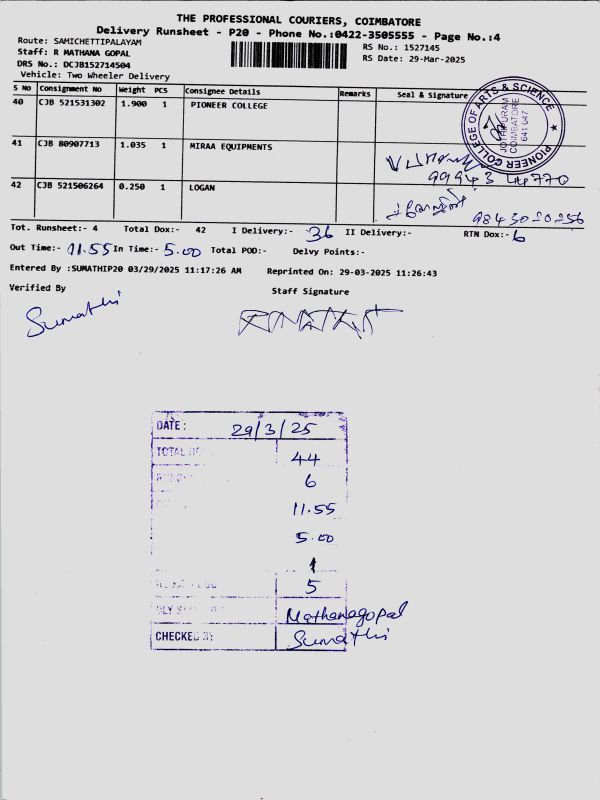 THE PROFESSIONAL COURIERS, COIMBATORE
Delivery Runsheet - P20 - Phone No.:0422-3505555 - Page No.:4
Route: SAMICHETTIPALAYAM
RS No.: 1527145
Staff: R MATHANA GOPAL
RS Date: 29-Mar-2025
DRS No.: DCJB152714504
Vehicle: Two Wheeler Delivery
S No Consignment No Weight PCS Consignee Details Remarks Seal & Signature
40 CJB 521531302 1.900 1 PIONEER COLLEGE
PIONEER COLLEGE OF ARTS & SCIENCE
JOTHIPURAM
COIMBATORE
641 047
41 CJB 80907713 1.035 1 MIRAA EQUIPMENTS
99943 44770
42 CJB 521506264 0.250 1 LOGAN
9843020256
Tot. Runsheet:- 4 Total Dox:- 42 I Delivery:- 36 II Delivery:- RTN Dox:- 6
Out Time:- 11.55 In Time:- 5.00 Total POD:- Delvy Points:-
Entered By :SUMATHIP20 03/29/2025 11:17:26 AM Reprinted On: 29-03-2025 11:26:43
Verified By Staff Signature
Sumathi
DATE : 29/3/25
TOTAL 44
6
11.55
5.00
1
5
Mathanagopal
CHECKED BY Sumathi